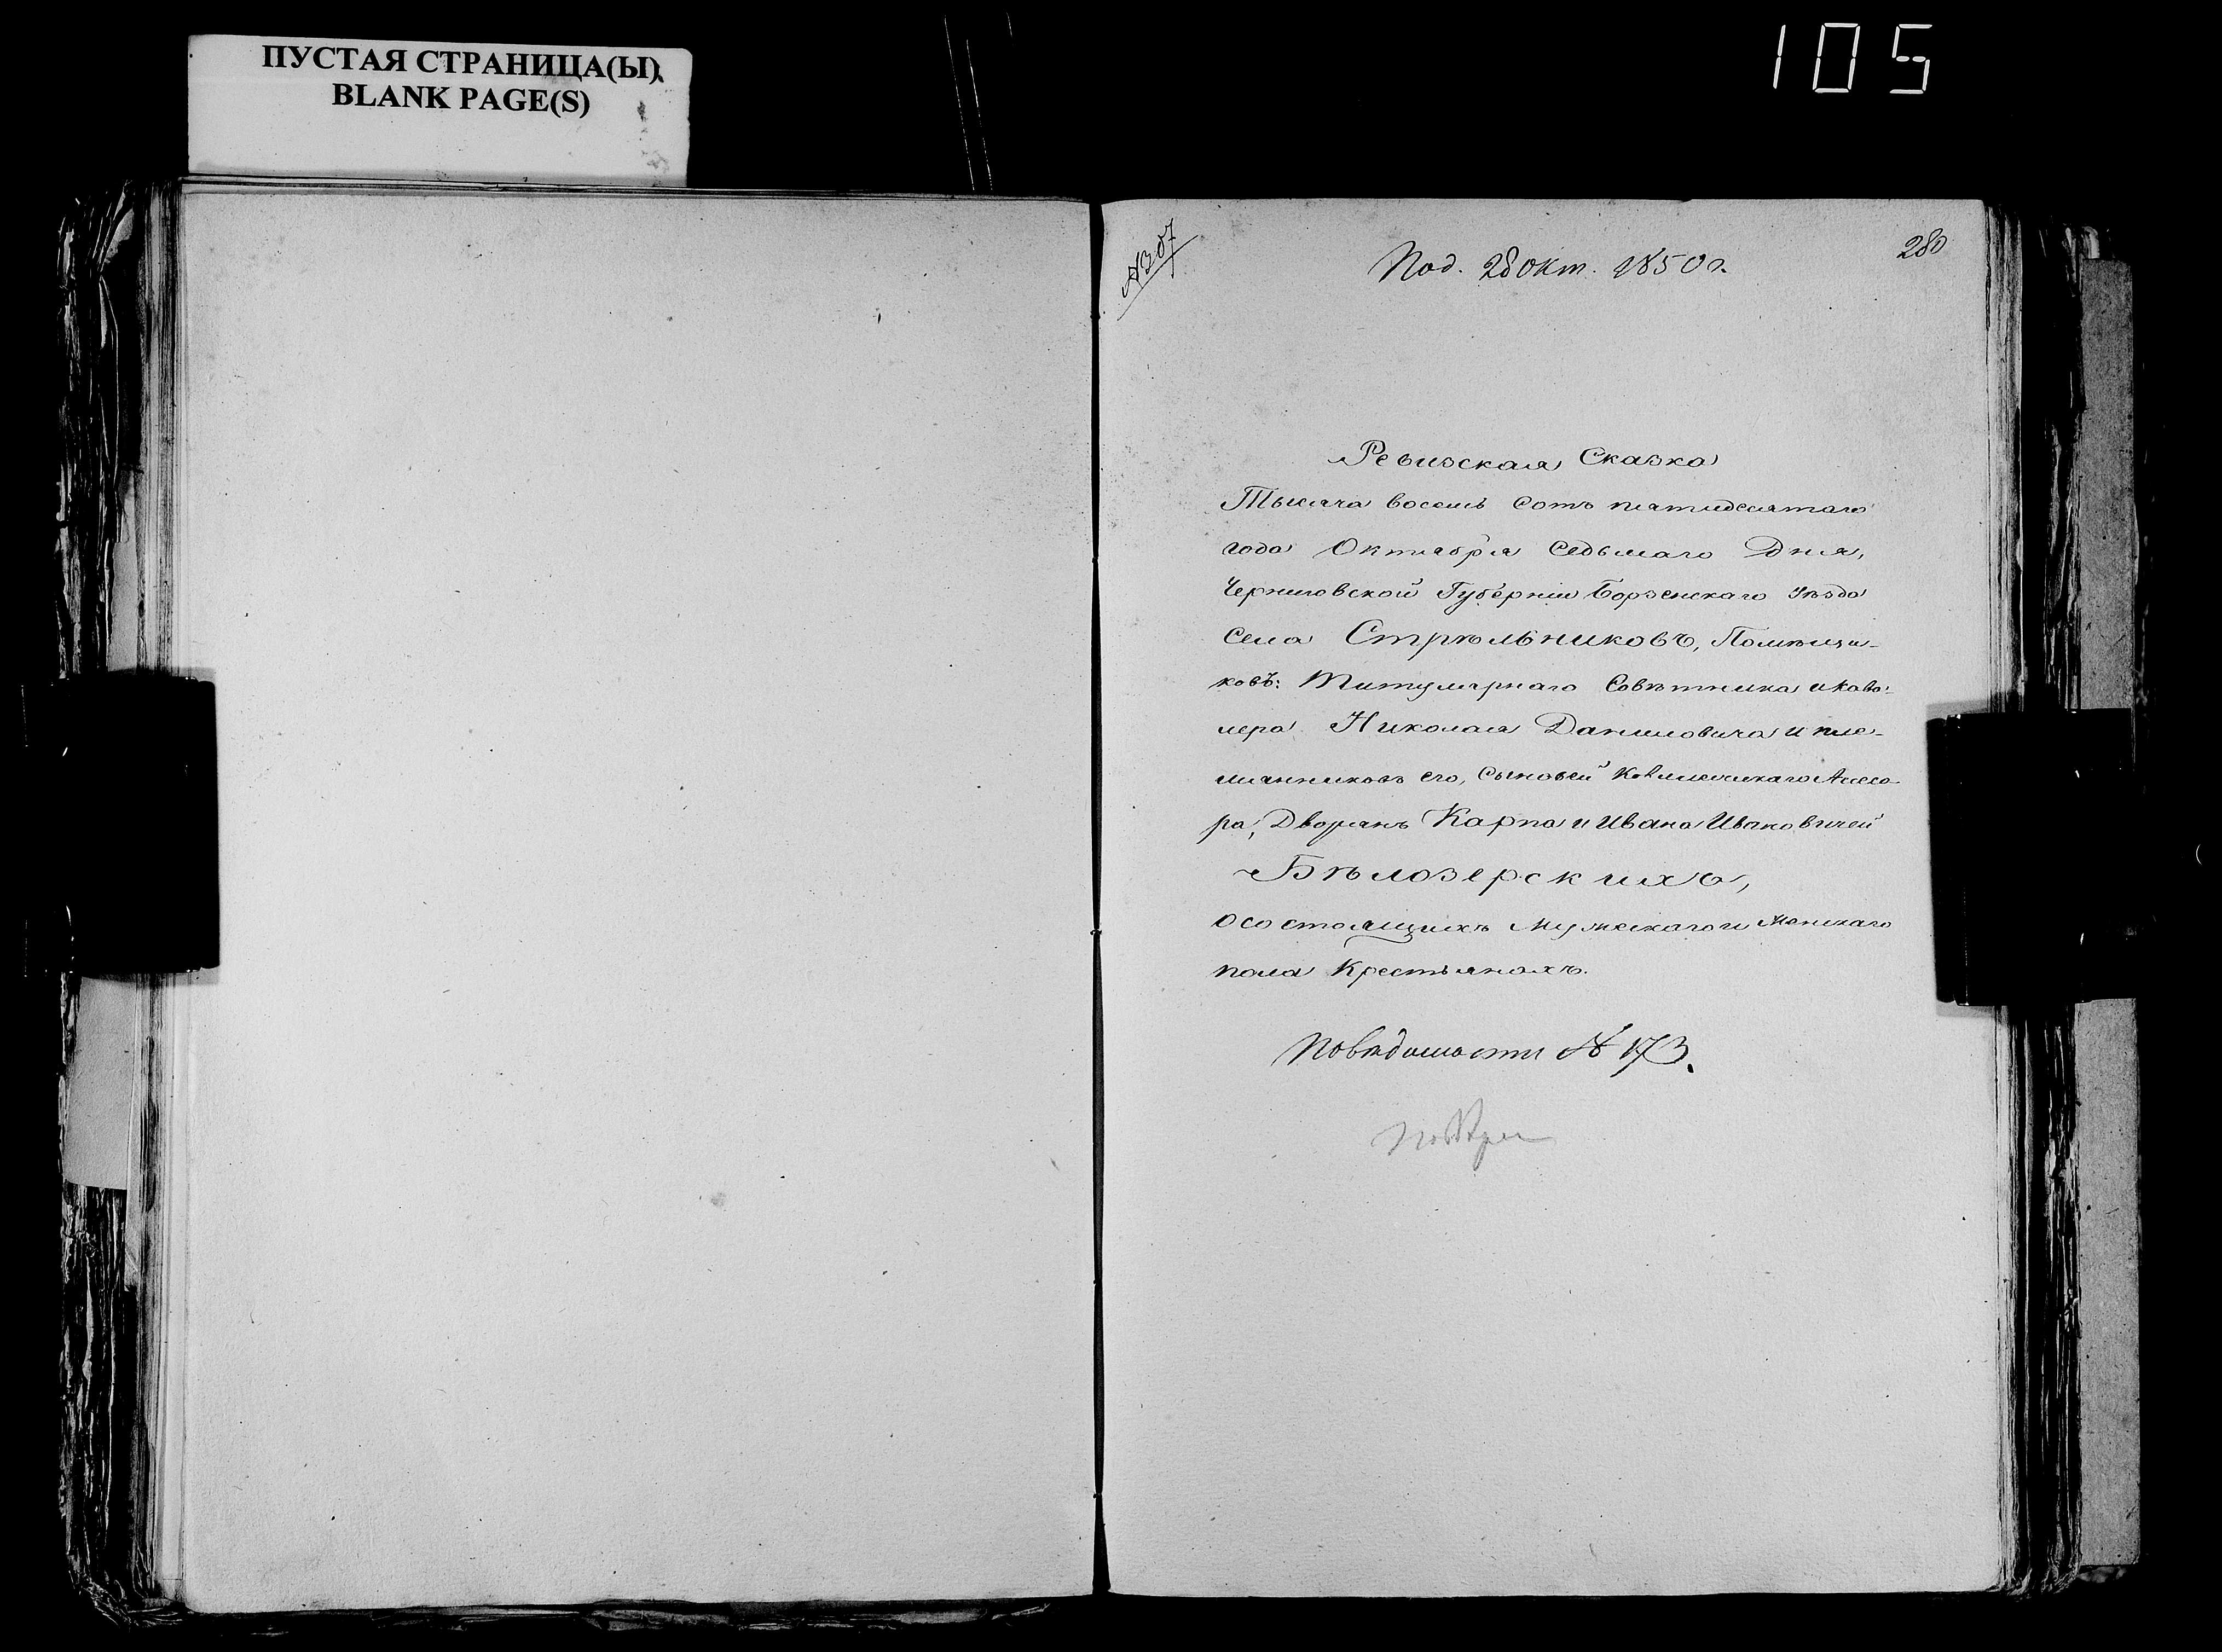 ПУСТАЯ СТРАНИЦА(Ы)
BLANK PAGE(S)
105
№ 307
280
Под. 28 Окт. 1850 г.
Ревизская Сказка
Тысяча восемь сотъ пятидесятаго
года Октября седьмаго Дня,
Черниговской Губерніи Борзенскаго Уѣзда
Села Стрѣльниковъ, Помѣщи-
ковъ: Титулярнаго Совѣтника и Кава-
лера Николая Даниловича и пле-
мянниковъ его, Сыновей Коллежскаго Ассесо-
ра, Дворянъ Карпа и Ивана Ивановичей
Бѣлозерскихъ,
о состоящихъ Мужескаго и Женскаго
пола Крестьянахъ.
По вѣдомости № 173.